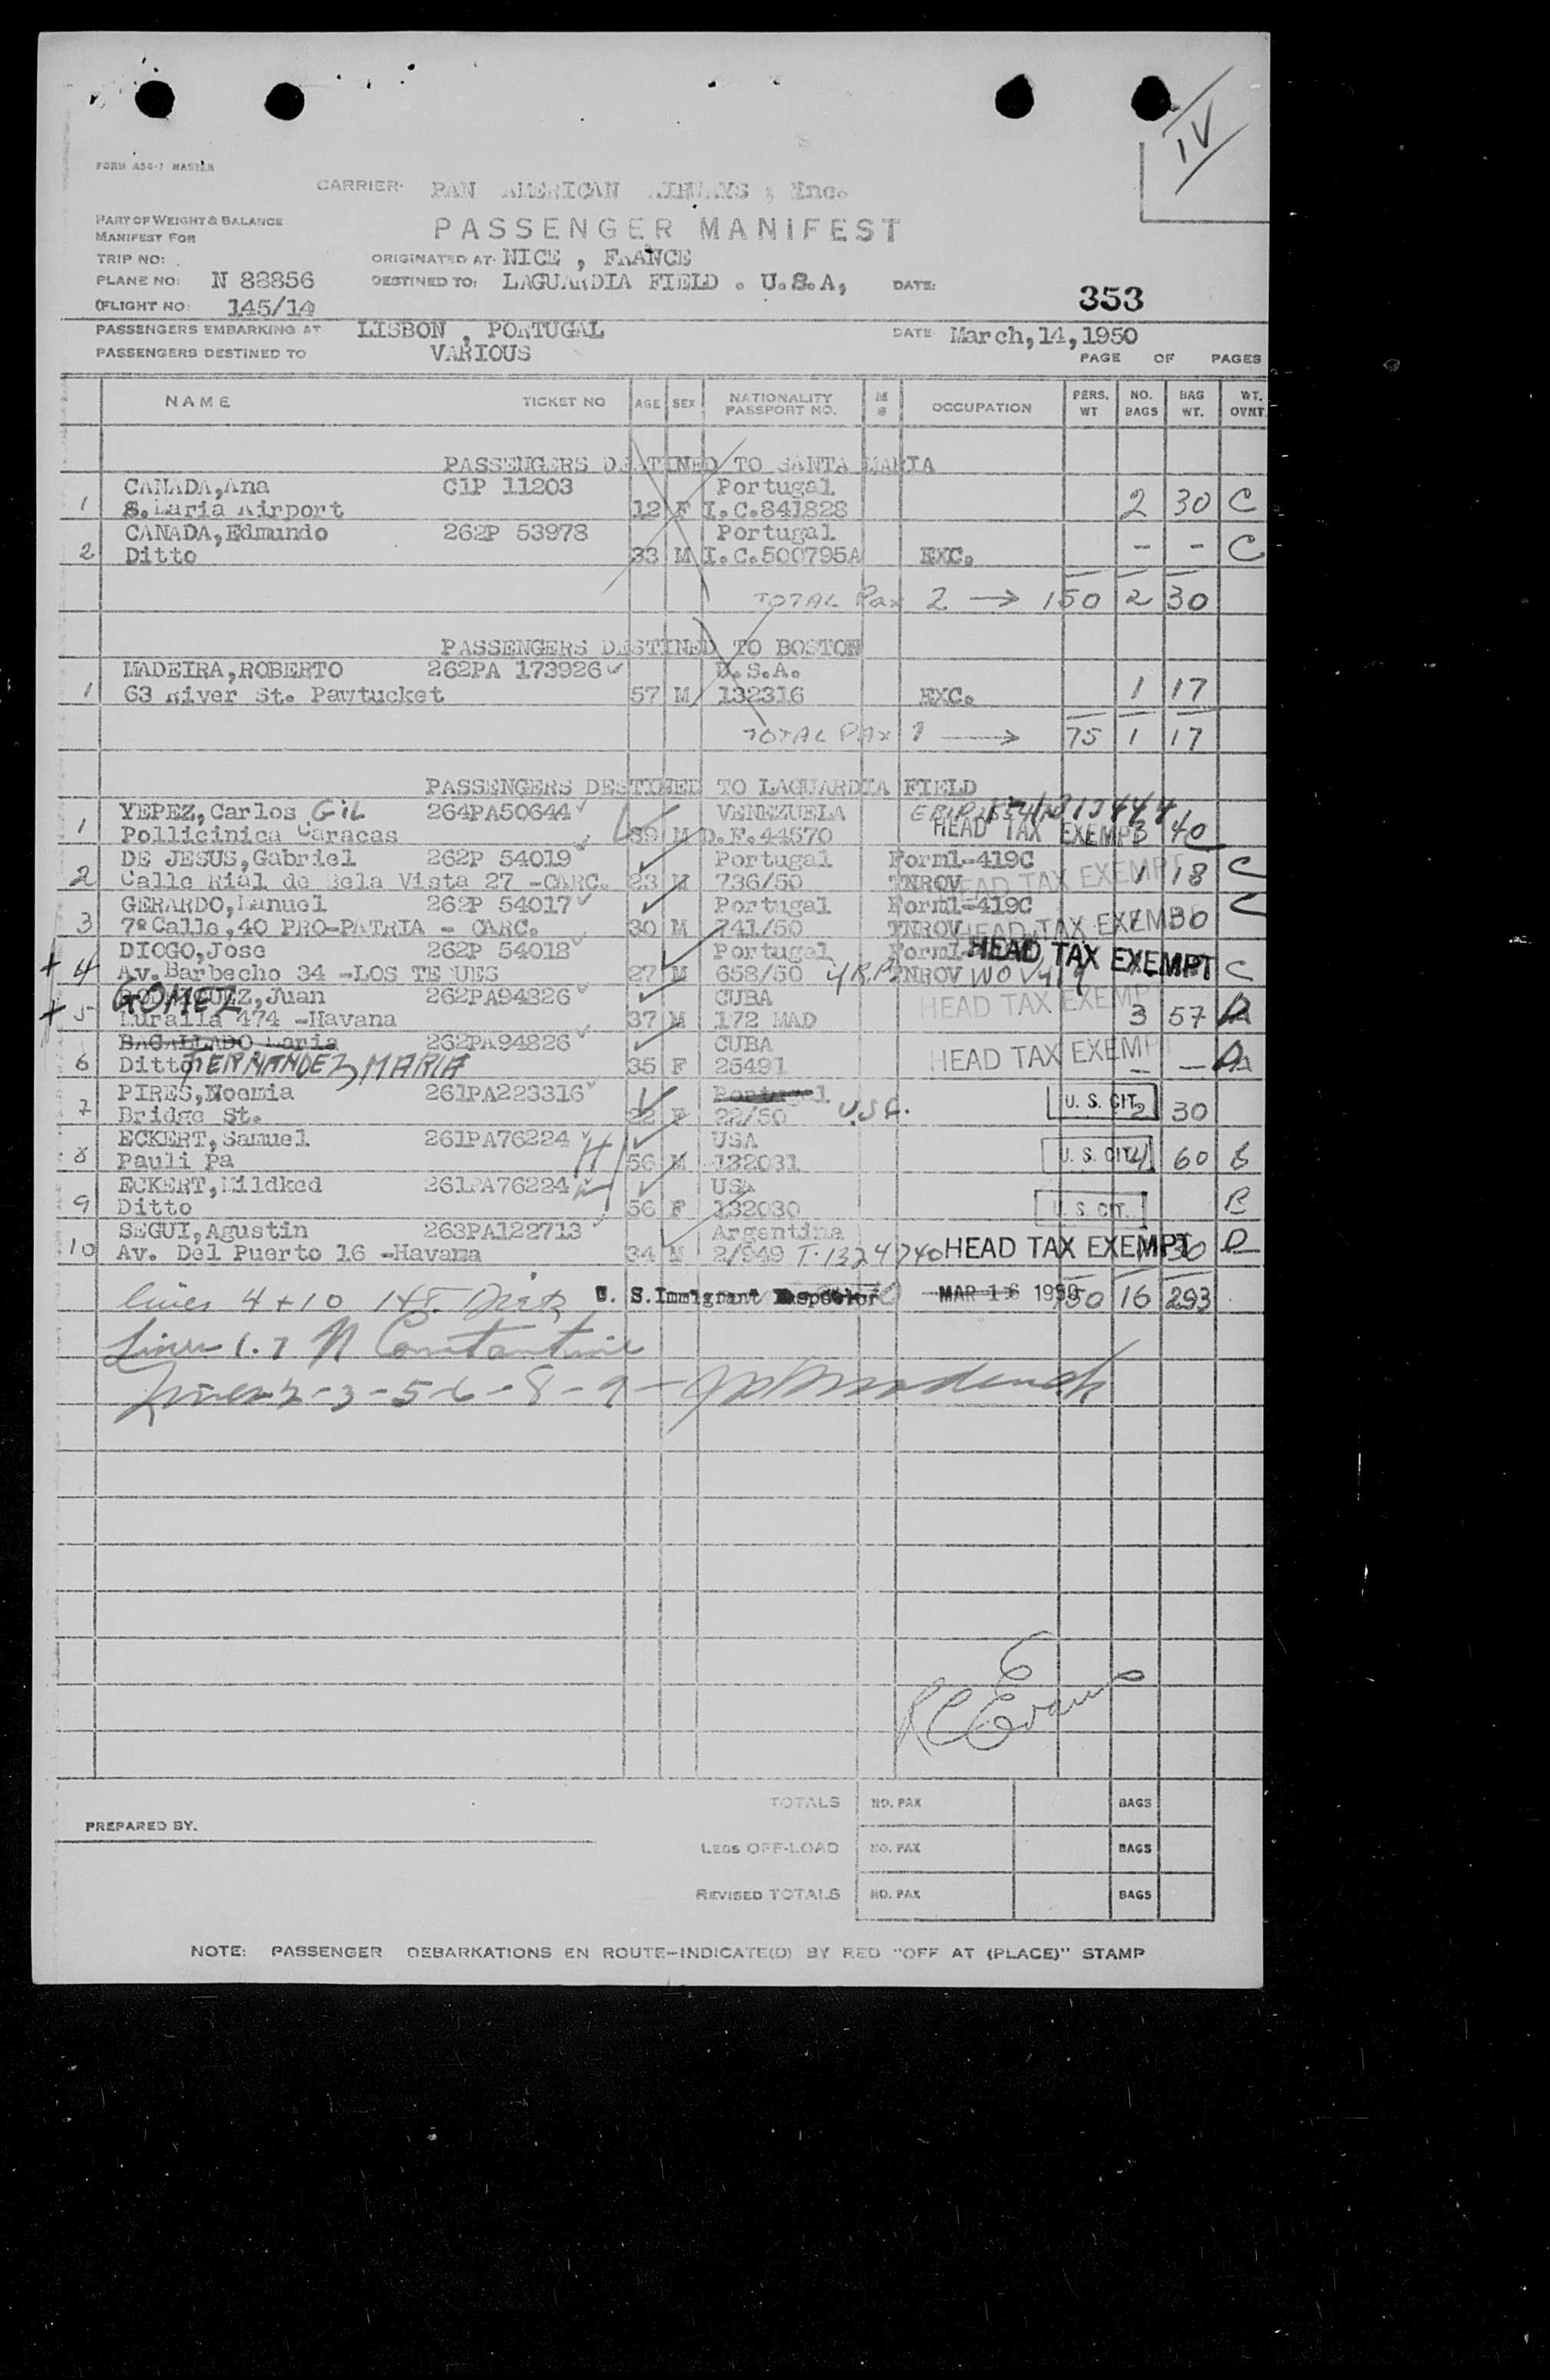 IV
FORM 434-1 MASTER
CARRIER: PAN AMERICAN AIRWAYS, Inc.
PART OF WEIGHT & BALANCE
MANIFEST FOR
PASSENGER MANIFEST
TRIP NO: ORIGINATED AT: NICE , FRANCE
PLANE NO: N 88856 DESTINED TO: LAGUARDIA FIELD . U.S.A, DATE: 353
(FLIGHT NO: 145/14
PASSENGERS EMBARKING AT LISBON , PORTUGAL DATE March,14,1950
PASSENGERS DESTINED TO VARIOUS PAGE OF PAGES
NAME TICKET NO AGE SEX NATIONALITY PASSPORT NO. M S OCCUPATION PERS. WT NO. BAGS BAG WT. WT. OVNT.
PASSENGERS DESTINED TO SANTA MARIA
CANADA,Ana C1P 11203 Portugal
1 S.Maria Airport 12 F I.C.841828 2 30 C
CANADA,Edmundo 262P 53978 Portugal
2 Ditto 33 M I.C.500795A EXC. - - C
TOTAL Pax 2 → 150 2 30
PASSENGERS DESTINED TO BOSTON
MADEIRA,ROBERTO 262PA 173926 U.S.A.
1 63 River St. Pawtucket 57 M 132316 EXC. 1 17
TOTAL PAx 1 → 75 1 17
PASSENGERS DESTINED TO LAGUARDIA FIELD
YEPEZ,Carlos GIL 264PA50644 VENEZUELA
1 Pollicinica Caracas 39 M D.F.44570 HEAD TAX EXEMPT 3 40
DE JESUS,Gabriel 262P 54019 Portugal Form1-419C
2 Calle Rial de Bela Vista 27 -CARC. 23 M 736/50 TNROV HEAD TAX EXEMPT 1 18 C
GERARDO,Manuel 262P 54017 Portugal Form1-419C
3 7ºCalle,40 PRO-PATRIA - CARC. 30 M 741/50 TNROV HEAD TAX EXEMPT 30 C
DIOGO,Jose 262P 54018 Portugal Form1- HEAD TAX EXEMPT
4 Av.Barbecho 34 -LOS TEQUES 27 M 658/50 TNROV C
GOMEZ,Juan 262PA94826 CUBA HEAD TAX EXEMPT
5 Muralla 474 -Havana 37 M 172 MAD 3 57
BAGALLADO Maria 262PA94826 CUBA HEAD TAX EXEMPT
6 Ditto FERNANDEZ, MARIA 35 F 25491 - -
PIRES,Noemia 261PA223316 Portugal
7 Bridge St. 22 F 22/50 U.S.A. U. S. CIT. 2 30
ECKERT,Samuel 261PA76224 USA
8 Pauli Pa 56 M 132031 U. S. CIT. 4 60 B
ECKERT,Mildked 261PA76224 USA
9 Ditto 56 F 132030 U. S. CIT. B
SEGUI,Agustin 263PA122713 Argentina
10 Av. Del Puerto 16 -Havana 34 M 2/949 T-1324740 HEAD TAX EXEMPT 30 D
Lines 4 + 10 U. S. Immigrant Inspector MAR 16 1950 750 16 293
Lines 1.7 N Constantine
Lines 2-3-5-6-8-9-
RC Evans
TOTALS NO. PAX BAGS
PREPARED BY.
LEGS OFF-LOAD NO. PAX BAGS
REVISED TOTALS NO. PAX BAGS
NOTE: PASSENGER DEBARKATIONS EN ROUTE-INDICATE(D) BY RED "OFF AT (PLACE)" STAMP